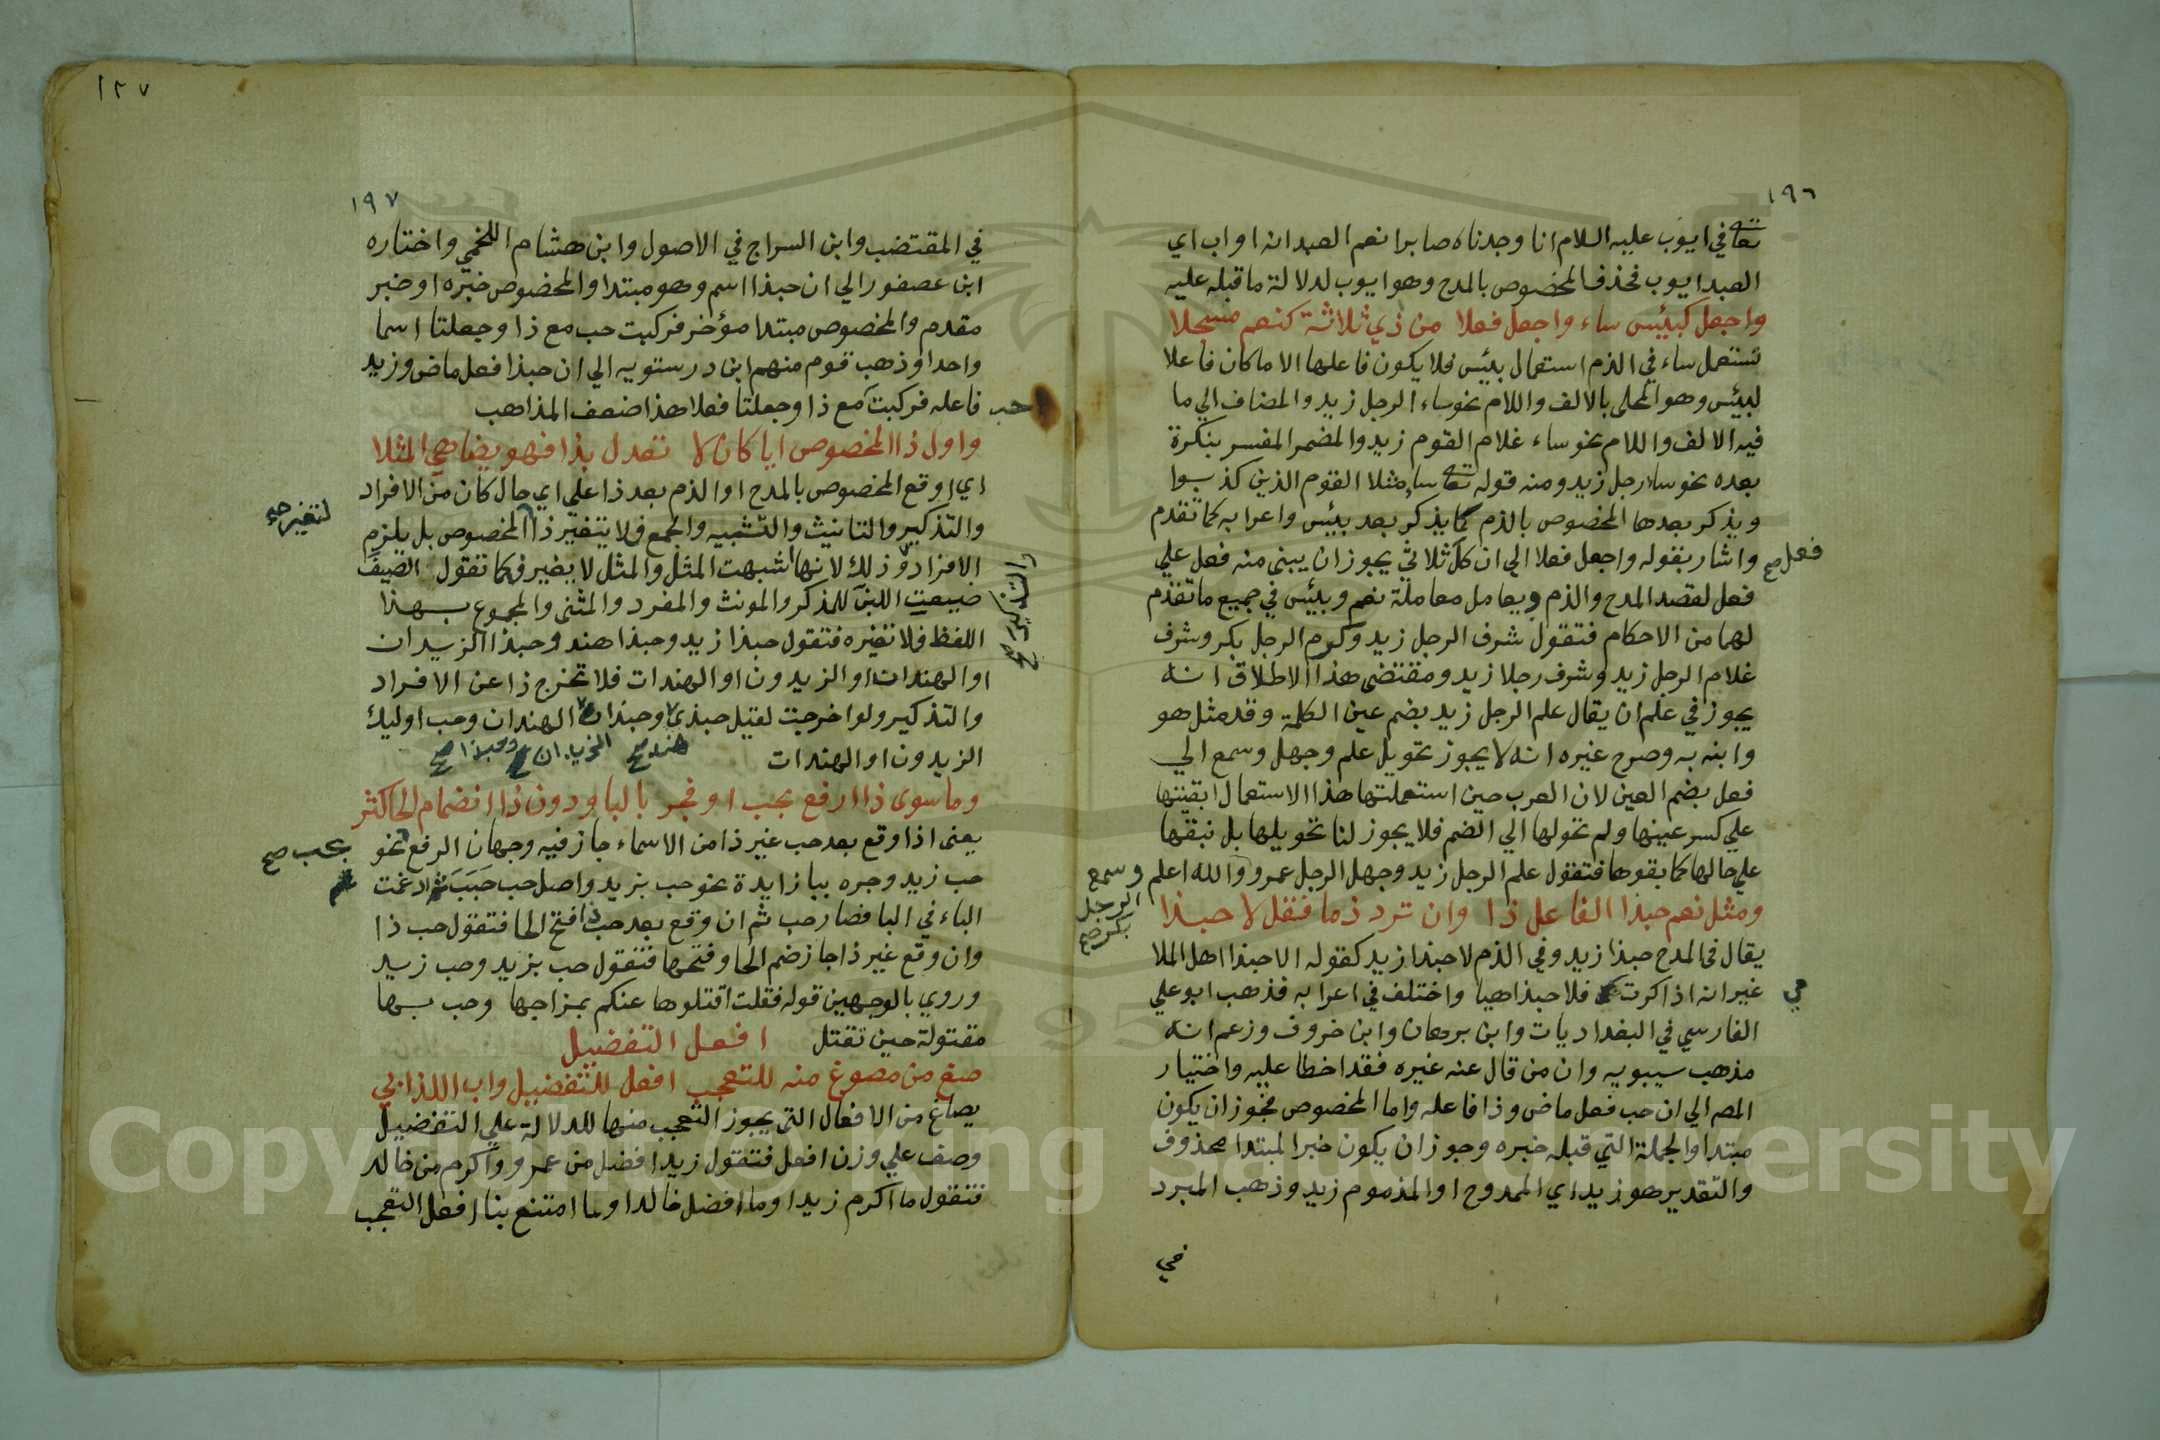 ١٩٦
تعالى في ايوب عليه السلام انا وجدناه صابرا نعم العبد انه اواب اي
العبد ايوب فحذف المخصوص بالمدح وهو ايوب لدلالة ما قبله عليه
واجعل كبئيس ساء واجعل فعلا من ذي ثلاثة كنعم مسجلا
تستعمل ساء في الذم استعمال بئيس فلا يكون فاعلها الا ما كان فاعلا
لبئيس وهو المحلى بالالف واللام نحو ساء الرجل زيد والمضاف الي ما
فيه الالف واللام نحو ساء غلام القوم زيد والمضمر المفسر بنكرة
بعده نحو ساء رجل زيد ومنه قوله تعالى ساء مثلا القوم الذين كذبوا
ويذكر بعدها المخصوص بالذم كما يذكر بعد بيئس واعرابه كما تقدم
واشار بقوله واجعل فعلا الي ان كل ثلاثي يجوز ان يبنى منه فعل علي
فعل صح
فعل لقصد المدح والذم ويعامل معاملة نعم وبيئس في جميع ما تقدم
لهما من الاحكام فتقول شرف الرجل زيد وكرم الرجل بكر وشرف
غلام الرجل زيد وشرف رجلا زيد ومقتضى هذا الاطلاق انه
يجوز في علم ان يقال علم الرجل زيد بضم عين الكلمة وقد مثل هو
وابنه به وصرح غيره انه لا يجوز تحويل علم وجهل وسمع الي
فعل بضم العين لان العرب حين استعملتها هذا الاستعمال ابقتها
علي كسر عينها ولم تحولها الي الضم فلا يجوز لنا تحويلها بل نبقيها
علي حالها كما بقوها فتقول علم الرجل زيد وجهل الرجل عمرو والله اعلم
وسمع
الرجل
بكر صح
ومثل نعم حبذا الفاعل ذا وان ترد ذما فقل لا حبذا
يقال في المدح حبذا زيد وفي الذم لا حبذا زيد كقوله الا حبذا اهل الملا
غير انه اذا كرت فلا حبذا هيا واختلف في اعرابه فذهب ابو علي
مي
الفارسي في البغداديات وابن برهان وابن خروف وزعم انه
مذهب سيبويه وان من قال عنه غيره فقد اخطا عليه واختيار
المص الي ان حب فعل ماض وذا فاعله واما المخصوص فجوز ان يكون
مبتدا والجملة التي قبله خبره وجوز ان يكون خبرا لمبتدا محذوف
والتقدير هو زيد اي الممدوح او المذموم زيد وذهب المبرد
في
١٢٧
١٩٧
في المقتضب وابن السراج في الاصول وابن هشام اللخمي واختاره
ابن عصفور الي ان حبذا اسم وهو مبتدا والمخصوص خبره او خبر
مقدم والمخصوص مبتدا مؤخر فركبت حب مع ذا وجعلتا اسما
واحدا وذهب قوم منهم ابن درستويه الي ان حبذا فعل ماض وزيد
فاعله فركبت مع ذا وجعلتا فعلا هذا ضعف المذاهب
حب
واول ذا المخصوص ايا كان لا تعدل بذا فهو يضاهي المثلا
اي اوقع المخصوص بالمدح او الذم بعد ذا علي اي حال كان من الافراد
والتذكير والتانيث والتثنيه والجمع فلا يتغير ذا المخصوص بل يلزم
لتغير صح
الافراد وذلك لانها اشبهت المثل والمثل لا يغير فكما تقول الصيف
والتذكير صح
ضيعت اللبن للمذكر والمونث والمفرد والمثنى والمجموع بهذا
اللفظ فلا تغيره فتقول حبذا زيد وحبذا هند وحبذا الزيدان
او الهندان او الزيدون او الهندات فلا تخرج ذا عن الافراد
والتذكير ولو اخرجت لقيل حبذي وحبذان الهندان وحب اوليك
الزيدون او الهندات
هند صح الزيدان صح وحبذا صح
وما سوى ذا ارفع بحب او فجر بالبا ودون ذا انضمام الحا كثر
يعنى اذا وقع بعد حب غير ذا من الاسماء جاز فيه وجهان الرفع نحو
بحب صح
حب زيد وجره ببا زايدة نحو حب بزيد واصل حب حبب ثم ادغمت
الباء في البا فصار حب ثم ان وقع بعد حب ذا فتح الحا فتقول حب ذا
وان وقع غير ذا جاز ضم الحا وفتحها فتقول حب بزيد وحب زيد
وروي بالوجهين قوله فقلت اقتلوها عنكم بمزاجها وحب بها
مقتولة حين تقتل افعل التفضيل
صغ من مصوغ منه للتعجب افعل للتفضيل واب اللذ ابي
يصاغ من الافعال التى يجوز التعجب منها للدلالة علي التفضيل
وصف علي وزن افعل فتقول زيد افضل من عمرو واكرم من خالد
فتقول ما اكرم زيدا وما افضل خالدا وما امتنع بنا افعل التعجب
Copyright © King Saud University